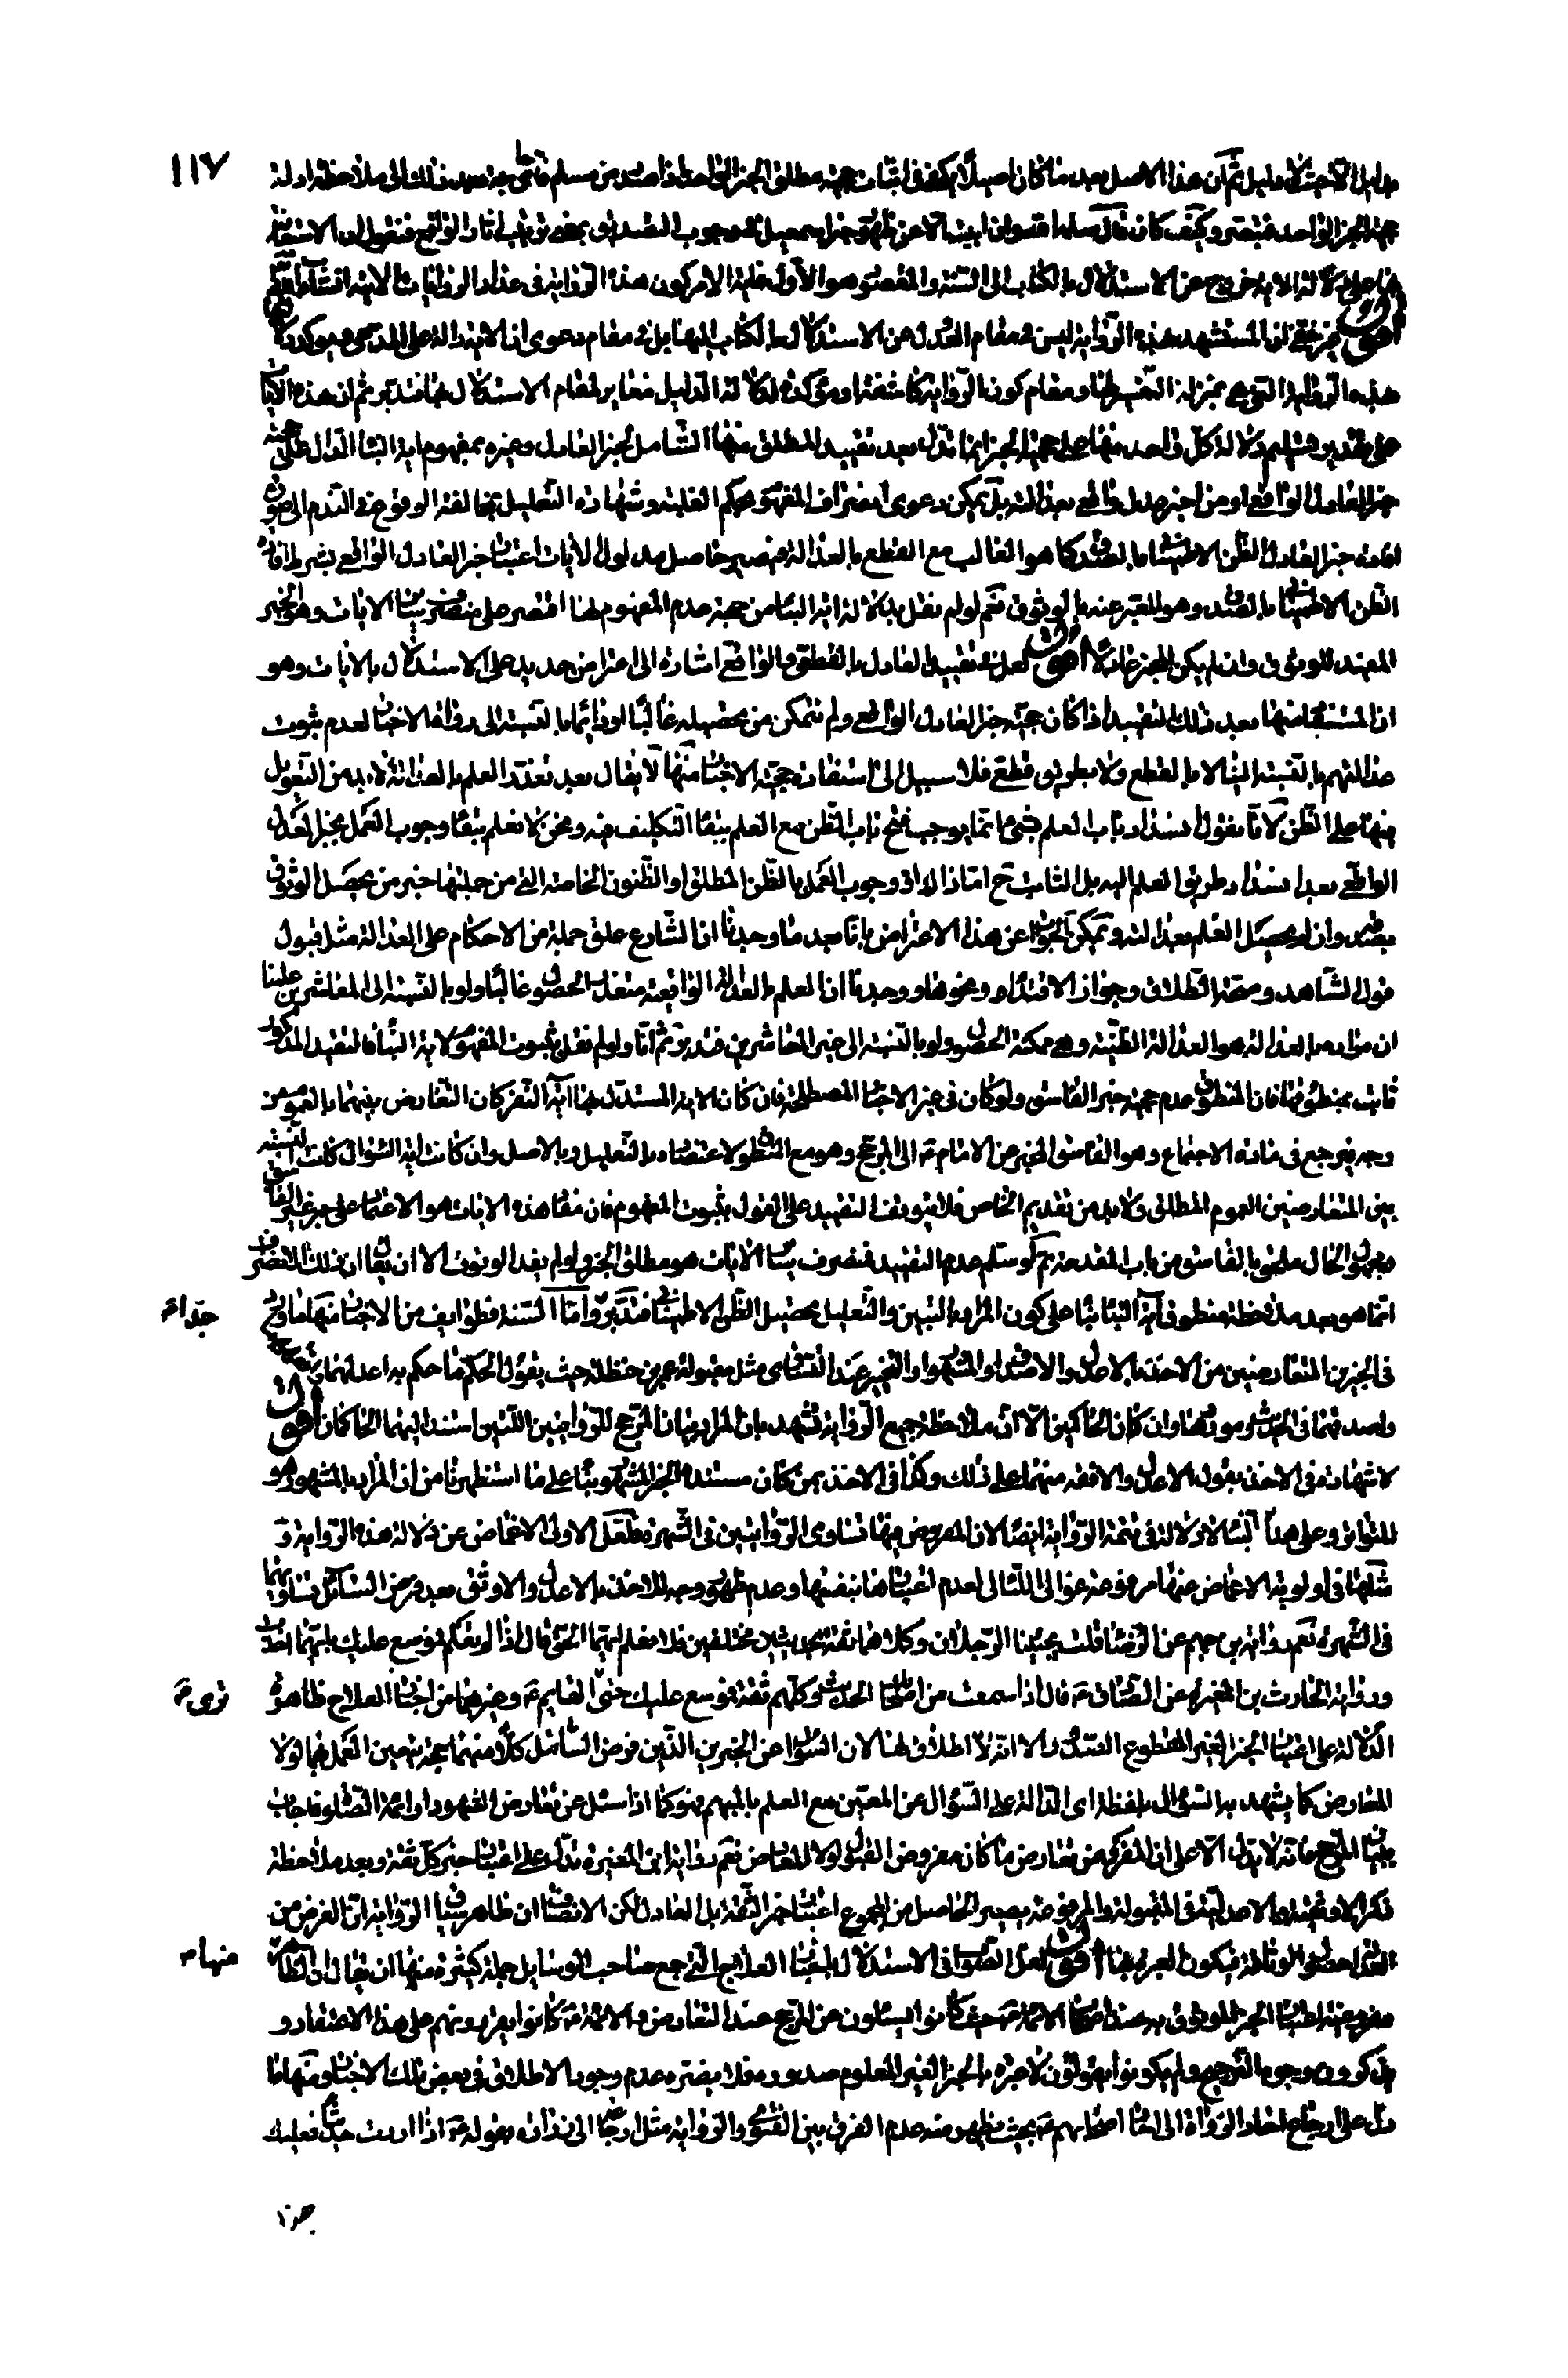 ١١٧
بدليل الاحتياط دليل ثم ان هذا الاصل بعد ما كان اصيلا يكفى فى اثبات حجية مطلق الخبر الواحد اذا صدر من مسلم فالحاجة بعد ذلك الى ملاحظة ادلة
حجية الخبر الواحد فتبصر وكيف كان قال سلمه
هذه الرواية التى هى بمنزلة التفسير لها ومقام كون الرواية كاشفة ومؤكدة لدلالة الدليل مغاير لمقام الاستدلال بها فتدبر ثم ان هذه الايات
على تقدير تسليم دلالة كل واحد منها على حجية الخبر انما تدل بعد تقييد المطلق منها الشامل لخبر العادل وغيره بمفهوم اية النبا الدال على حجية
خبر العادل الواقعى او من اخبر عدل واقعى بعدالته بل يمكن دعوى انصراف المفهوم بحكم الغلبة وشهادة التعليل بمخالفة الوقوع فى الندم الى صورة
افادة خبر العادل الظن الاطمينانى بالصدق كما هو الغالب مع القطع بالعدالة فيصير حاصل مدلول الايات اعتبار خبر العادل الواقعى بشرط افادة
الظن الاطمينانى بالصدق وهو المعبر عنه بالوثوق نعم لو لم نقل بدلالة اية النبا من جهة عدم المفهوم لها اقتصر على منصرف سياق الايات وهو الخبر
المفيد للوثوق وان لم يكن المخبر عادلا اقول لعل فى تقييد العادل بالقطعى والواقعى اشارة الى اعتراض جديد على الاستدلال بالايات وهو
ان المستفاد منها بعد ذلك التقييد اذا كان حجية خبر العادل الواقعى ولم نتمكن من تحصيله غالبا او دائما بالنسبة الى رواة الاخبار لعدم ثبوت
عدالتهم بالنسبة الينا لا بالقطع ولا بطريق قطعى فلا سبيل الى استفادة حجية الاخبار منها لا يقال بعد تعذر العلم بالعدالة لا بد من التعويل
فيها على الظن لانا نقول انسداد باب العلم بشئ ما انما يوجب فتح باب الظن مع العلم ببقاء التكليف فيه ونحن لا نعلم ببقاء وجوب العمل بخبر العدل
الواقعى بعد انسداد طريق العلم اليه بل الثابت ح اما ذاك او وجوب العمل بالظن المطلق او الظنون الخاصة التى من جملتها خبر من يحصل الوثوق
بصدقه وان لم يحصل العلم بعدالته ويمكن الجواب عن هذا الاعتراض بانا بعد ما وجدنا ان الشارع علق جملة من الاحكام على العدالة مثل قبول
قول الشاهد وصحة الطلاق وجواز الاقتداء ونحوها ووجدنا ان العلم بالعدالة الواقعية متعذر الحصول غالبا ولو بالنسبة الى المعاشرين علمنا
ان مراده بالعدالة هو العدالة الظنية وهى ممكنة الحصول ولو بالنسبة الى غير المعاشرين فتدبر ثم انا ولو لم نقل بثبوت المفهوم لاية النبا فالتقييد المذكور
ثابت بمنطوقها فان المنطوق عدم حجية خبر الفاسق ولو كان فى غير الاخبار المصطلحة فان كان الاية المستدل بها اية النفر كان التعارض بينهما بالعموم من
وجه يرجع فى مادة الاجتماع وهو الفاسق المخبر عن الامام ع الى المرجح وهو مع المنطوق لاعتضاده بالتعليل وبالاصل وان كانت اية السؤال كانت النسبة
بين المتعارضين العموم المطلق ولا بد من تقديم الخاص فلا يتوقف التقييد على القول بثبوت المفهوم فان مفاد هذه الايات هو الاعتماد على خبر غير الفاسق
ومجهول الحال ملحق بالفاسق من باب المقدمة ثم لو سلم عدم التقييد فمنصرف سياق الايات هو مطلق الخبر ولو لم يفد الوثوق الا ان يقال ان ذلك الانصراف
انما هو بعد ملاحظة منطوق اية النبا بناء على كون المراد بالتبين والتعليل تحصيل الظن الاطمينانى فتدبر واما السنة فطوايف من الاخبار منها ما ورد جدا م
فى الخبرين المتعارضين من الاخذ بالاعدل والاصدق او المشهور او التخيير عند التساوى مثل مقبولة عمر بن حنظلة حيث يقول الحكم ما حكم به اعدلهما وافقههما
واصدقهما فى الحديث وموردها وان كان الحاكمين الا ان ملاحظة جميع الرواية تشهد بان المراد بيان المرجح للروايتين اللتين استند اليهما الحاكمان اقول
لا شهادة فى الاخذ بقول الاعدل والافقه منهما على ذلك وكذا فى الاخذ بمن كان مستنده الخبر المشهور بناء على ما استظهرنا من ان المراد بالمشهور هو
المتواتر وعلى هذا ايضا لا دلالة فى تتمة الرواية ايضا لان المفروض فيها تساوى الروايتين فى الشهرة فلعل الاولى الاغماض عن دلالة هذه الرواية و
مثلها فى اولوية الاغماض عنها مرفوعة غوالى اللئالى لعدم اعتبارها بنفسها وعدم ظهور وجه للاخذ بالاعدل والاوثق بعد فرض السائل تساويهما
فى الشهرة نعم رواية ابن جهم عن الرضا قلت يجيئنا الرجلان وكلاهما ثقة بحديثين مختلفين فلا نعلم ايهما الحق قال اذا لم يعلم فموسع عليك بايهما اخذت
ورواية الحارث بن المغيرة عن الصادق ع قال اذا سمعت من اصحابك الحديث وكلهم ثقة فموسع عليك حتى القايم ع وغيرهما من اخبار العلاج ظاهرة ترى م
الدلالة على اعتبار الخبر الغير المقطوع الصدور الا انه لا اطلاق لها لان السؤال عن الخبرين الذين فرض السائل كلا منهما حجة يتعين العمل بها لولا
المعارض كما يشهد به السؤال بلفظة اى الدالة على السؤال عن المعين مع العلم بالمبهم فهو كما اذا سئل عن تعارض الشهود او ائمة الصلوة فاجاب
ببيان المرجح فانه لا يدل الا على ان المفروض تعارض ما كان مفروض القبول لولا المعارض نعم رواية ابن المغيرة تدل على اعتبار خبر كل ثقة وبعد ملاحظة
ذكر الاوثقية والاعدلية فى المقبولة والمرفوعة يصير الحاصل من المجموع اعتبار خبر الثقة بل العادل لكن الانصاف ان ظاهر سياق الرواية ان الغرض من
العدالة حصول الوثاقة فيكون العبرة بها اقول لعل الصواب فى الاستدلال باخبار العلاج التى جمع صاحب الوسايل جملة كثيرة منها ان يقال ان الظاهر منها م
مفروغية اعتبار الخبر الموثوق به عند اصحاب الائمة ع حيث كانوا يسئلون عن المرجح عند التعارض والائمة ع كانوا يقررونهم على هذا الاعتقاد و
يذكرون وجوه الترجيح ولم يكونوا يقولون لا عبرة بالخبر الغير المعلوم صدوره فلا يضره عدم وجود الاطلاق فى بعض تلك الاخبار ومنها ما
دل على ارجاع احاد الرواة الى احاد اصحابهم ع بحيث يظهر منه عدم الفرق بين الفتوى والرواية مثل ارجاعه الى زرارة بقوله ع اذا اردت حديثا فعليك